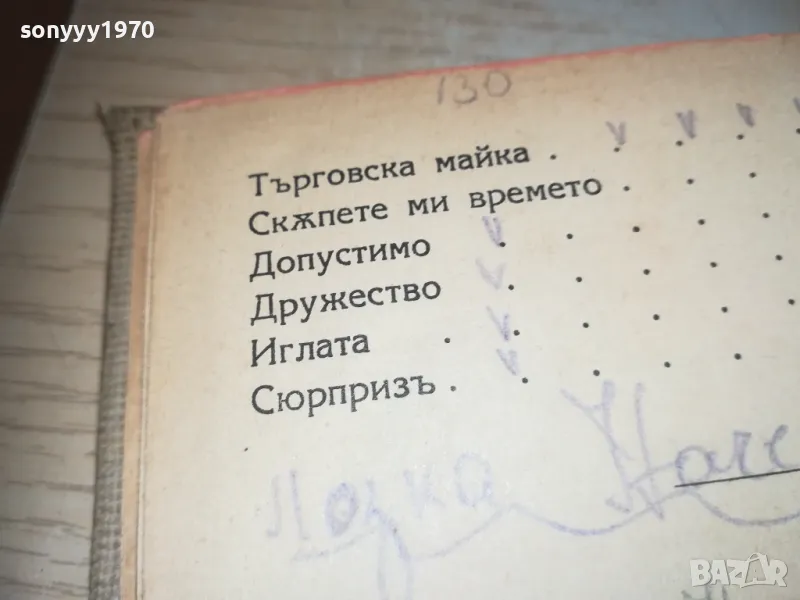 sonyyy1970
130
Търговска майка . . . .
Скѫпете ми времето . . .
Допустимо . . . . .
Дружество . . . . .
Иглата . . . . . .
Сюрпризъ . . . . .
BAZAR
.bg